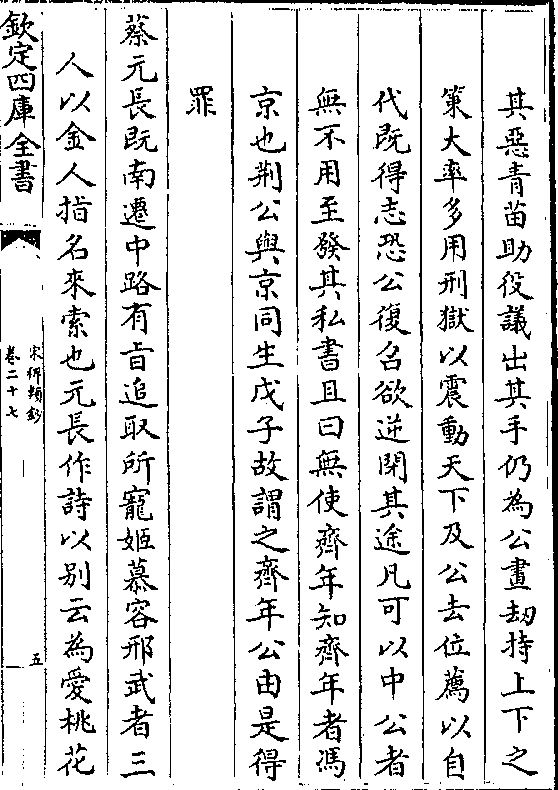 其惡青苗助役議出其手仍為公畫刼持上下之
策大率多用刑獄以震動天下及公去位薦以自
代既得志恐公復召欲逆閉其途凡可以中公者
無不用至發其私書且曰無使齊年知齊年者馮
京也荆公與京同生戊子故謂之齊年公由是得
罪
蔡元長既南遷中路有旨追取所寵姬慕容邢武者三
人以金人指名來索也元長作詩以别云為愛桃花
欽定四庫全書
宋稗類鈔
卷二十七
五